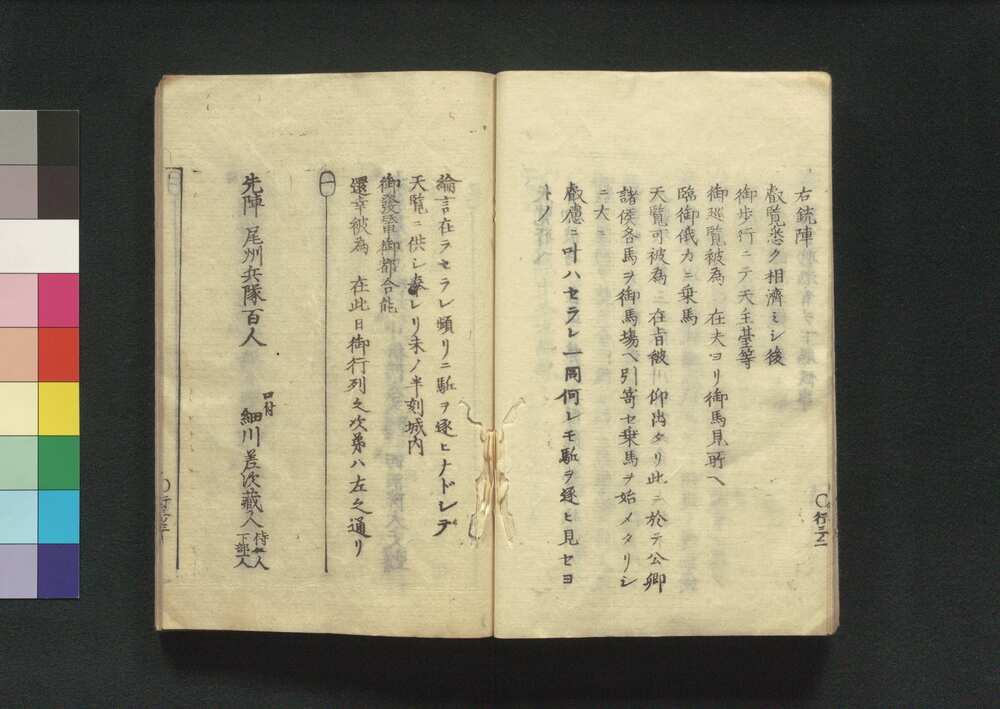 右銃陣
叡覧悉ク相濟ミシ後
御歩行ニテ天主䑓等
御巡覧被為 在夫ヨリ御馬見所ヘ
臨御俄カニ乗馬
天覧可被為 在旨被 仰出タリ此ニ於テ公卿
諸侯各馬ヲ御馬場ヘ引寄セ乗馬ヲ始メタリシ
ニ大ニ
叡慮ニ叶ハセラレ一同何レモ駈ヲ逐ヒ見セヨ
トノ
綸言在ラセラレ頻リニ駈ヲ逐ヒナドシテ
天覧ニ供シ奉レリ未ノ半刻城内
御發輦御都合能
還幸被為 在此日御行列之次第ハ左之通リ
先陣 尾州兵隊百人
口付 細川
侍 人
下部 人